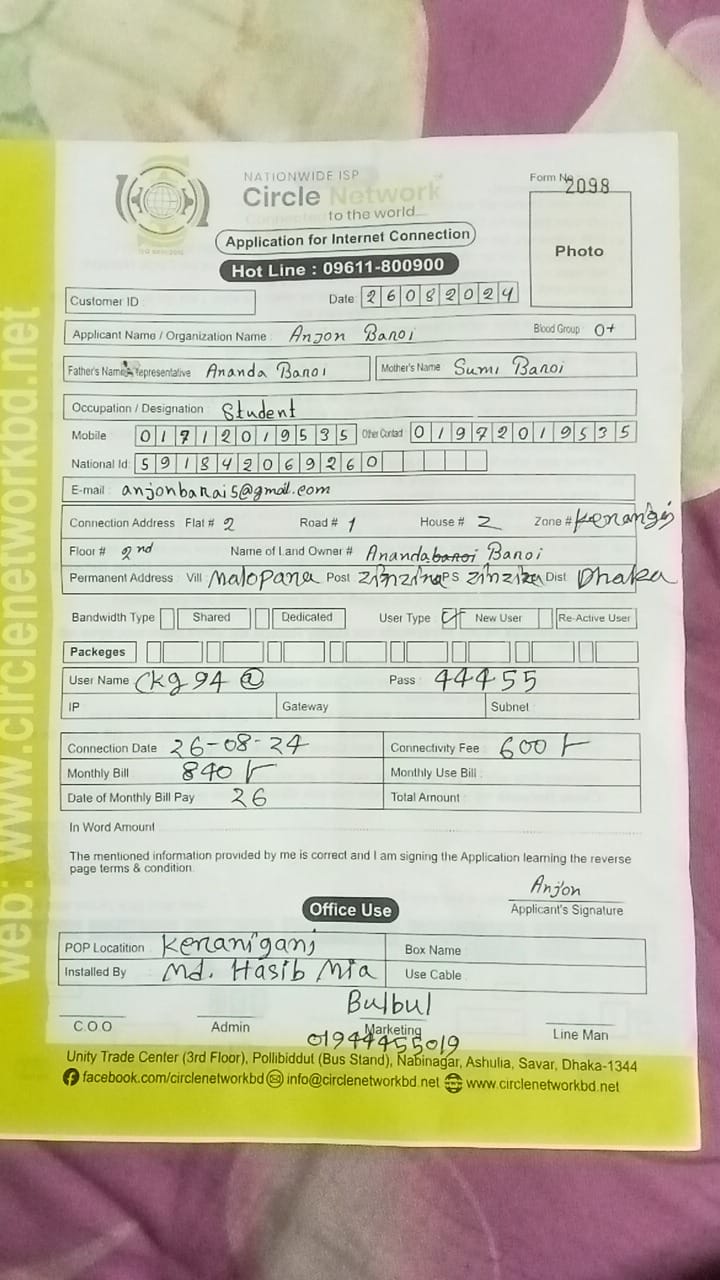 NATIONWIDE ISP
Circle Network
Connected to the world
Form No 2098
Photo
Application for Internet Connection
Hot Line : 09611-800900
Customer ID
Date 26082024
Applicant Name / Organization Name : Anjon Baroi Blood Group O+
Father's Name / Representative Ananda Baroi Mother's Name Sumi Baroi
Occupation / Designation Student
Mobile 01712019535 Other Contact 01972019535
National Id: 591842069260
E-mail : anjonbarai5@gmail.com
Connection Address Flat # 2 Road # 1 House # 2 Zone #
Floor # 2nd Name of Land Owner # Ananda baroi Baroi
Permanent Address Vill : Malopara Post Zinzira P.S Zinzira Dist Dhaka
Bandwidth Type Shared Dedicated User Type New User Re-Active User
Packeges
User Name Ckg94@ Pass : 44455
IP Gateway Subnet
Connection Date 26-08-24 Connectivity Fee 600/-
Monthly Bill 840/- Monthly Use Bill :
Date of Monthly Bill Pay : 26 Total Amount :
In Word Amount
The mentioned information provided by me is correct and I am signing the Application learning the reverse
page terms & condition.
Anjon
Applicant's Signature
Office Use
POP Locatition Keraniganj Box Name
Installed By Md. Hasib Mia Use Cable
Bulbul
C.O.O Admin Marketing Line Man
01944455019
Unity Trade Center (3rd Floor), Pollibiddut (Bus Stand), Nabinagar, Ashulia, Savar, Dhaka-1344
facebook.com/circlenetworkbd info@circlenetworkbd.net www.circlenetworkbd.net
web: www.circlenetworkbd.net